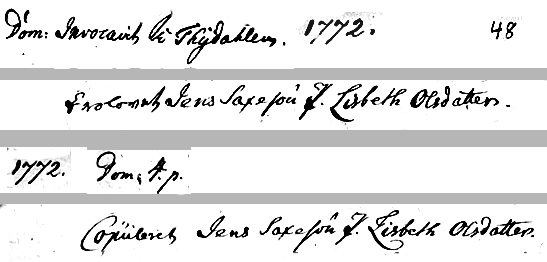 Dom: Invocavit i Thÿdahlen. 1772. 48
Trolovet Jens Saxesøn J. Lisbeth Olsdatter.
1772. Dom: 4. p.
Copuleret Jens Saxesøn J. Lisbeth Olsdatter.